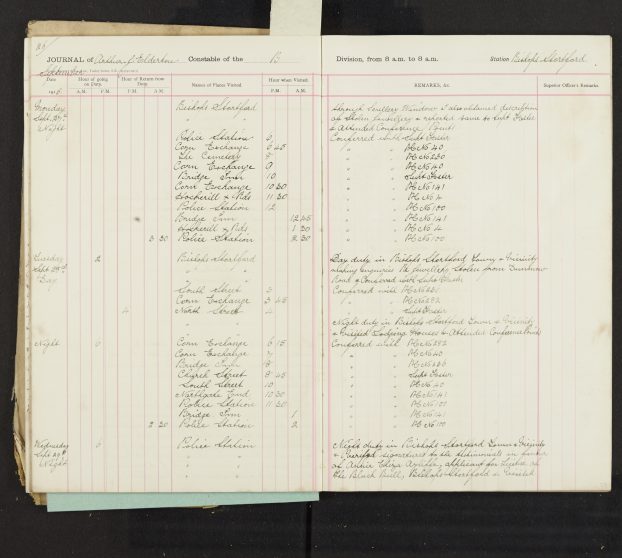 JOURNAL of Arthur J Elderkin Constable of the B Division, from 8 a.m. to 8 a.m. Station Bishops Stortford
Date Hour of going on Duty. Hour of Return from Duty Names of Places Visited Hour when Visited REMARKS, &c. Superior Officer's Remarks
A.M. P.M. P.M. A.M. P.M. A.M.
Monday Bishops Stortford through Scullery Window & also obtained description
Sept. 27th " " of Stolen Jewellery & reporter same to Supt Foster
Night & Attended Conference Points
Police Station 6 Conferred with Supt Foster
Corn Exchange 6 45 " " PC No 40
The Cemetery 8 " " PC No 280
Corn Exchange 9 " " PC No 40
Bridge Inn 10 " " Supt Foster
Corn Exchange 10 30 " " PC No 141
Hockerill 4 Rds 11 30 " " PC No 4
Police Station 12 " " PC No 100
Bridge Inn 12 45 " " PC No 141
Hockerill 4 Rds 1 30 " " PC No 4
3 30 Police Station 2 30 " " PC No 100
Tuesday 2 Bishops Stortford Day duty in Bishops Stortford Town & Vicinity
Sept 28th " " making Enquiries Re Jewellery Stolen from Dunmow
Day " " Road & Conferred with Supt Foster
South Street 3 Conferred with PC No 281
Corn Exchange 3 45 " " PC No 282
4 North Street 4 " " Supt Foster
" " Night duty in Bishops Stortford Town & Vicinity
" " & Visited Lodging Houses & Attended Conference Points
Night 6 Corn Exchange 6 15 Conferred with PC No 282
Corn Exchange 7 " " PC No 40
Bridge Inn 8 " " PC No 286
Church Street 8 45 " " Supt Foster
South Street 10 " " PC No 40
Northgate End 10 30 " " PC No 141
Police Station 11 30 " " PC No 101
Bridge Inn 1 " " PC No 141
2 30 Police Station 2 " " PC No 100
Wednesday 6 Police Station Night duty in Bishops Stortford Town & Vicinity
Sept 29th " " & signatures to the testimonials in favour
Night " " of Eliza applicant for licence of
" " the Black Bull, Bishops Stortford &